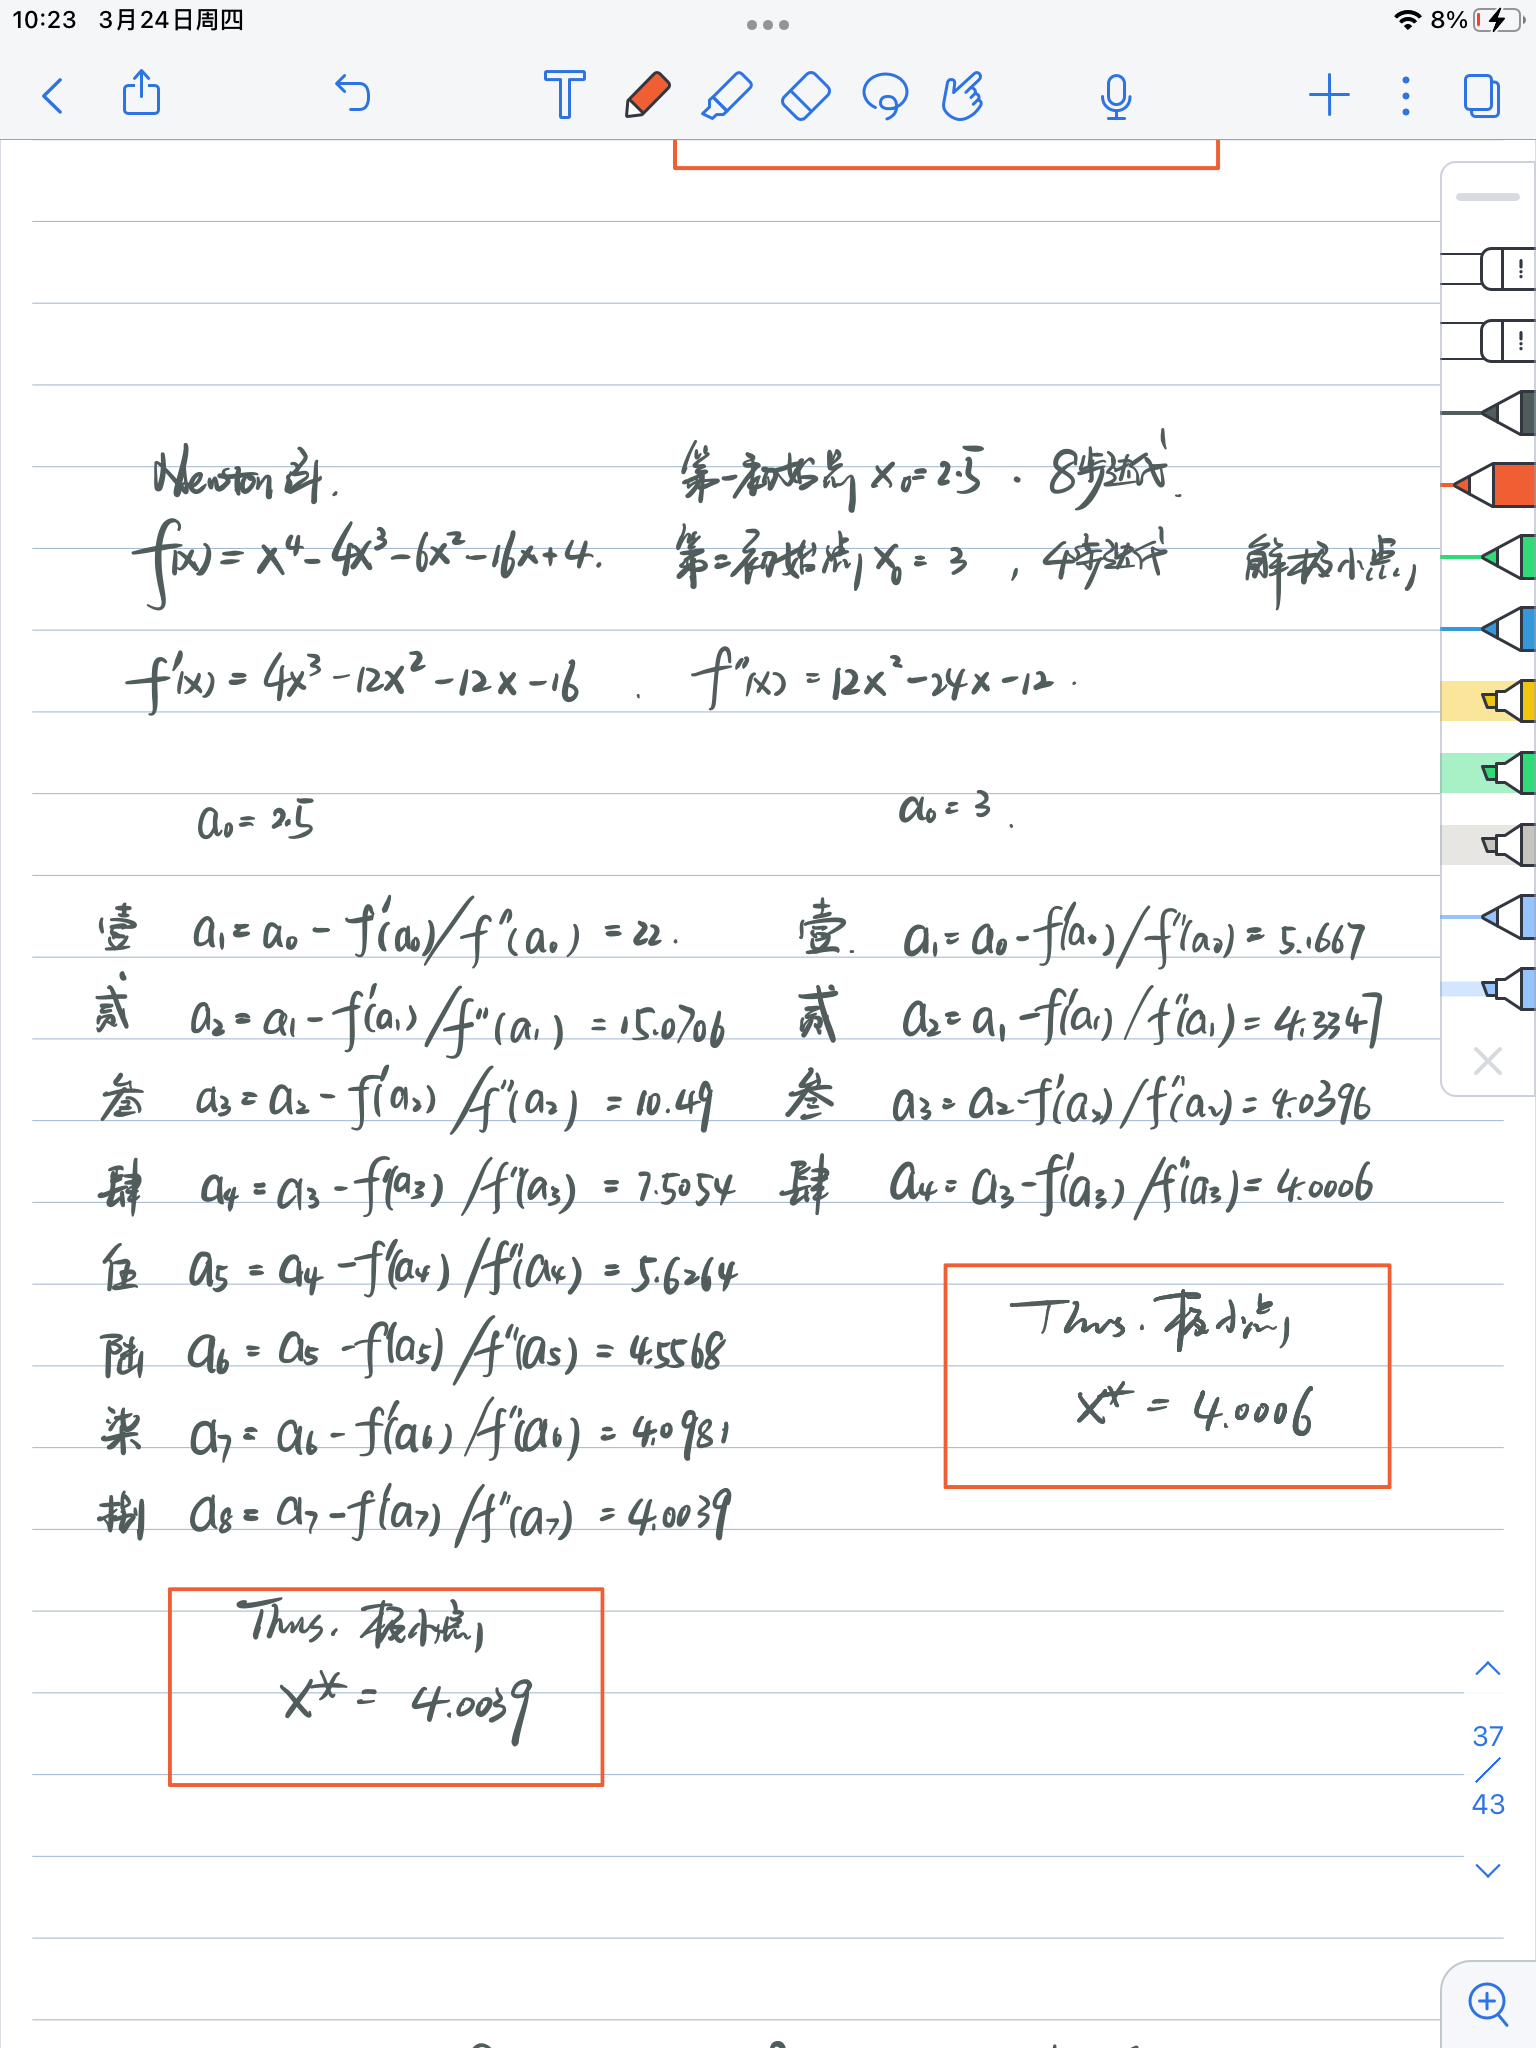 10:23 3月24日周四
8%
Newton 法.
第一初始点 x₀=2.5 . 8步迭代.
f(x) = x⁴-4x³-6x²-16x+4.
第二初始点 x₀ = 3 , 4步迭代 解极小点
f'(x) = 4x³-12x²-12x-16 . f''(x) = 12x²-24x-12 .
a₀ = 2.5
a₀ = 3 .
壹 a₁ = a₀ - f'(a₀)/f''(a₀) = 22.
贰 a₂ = a₁ - f'(a₁)/f''(a₁) = 15.0706
叁 a₃ = a₂ - f'(a₂)/f''(a₂) = 10.49
肆 a₄ = a₃ - f'(a₃)/f''(a₃) = 7.5054
伍 a₅ = a₄ - f'(a₄)/f''(a₄) = 5.6264
陆 a₆ = a₅ - f'(a₅)/f''(a₅) = 4.5568
柒 a₇ = a₆ - f'(a₆)/f''(a₆) = 4.0981
捌 a₈ = a₇ - f'(a₇)/f''(a₇) = 4.0039
Thus. 极小点
x* = 4.0039
壹. a₁ = a₀ - f'(a₀)/f''(a₀) = 5.1667
贰 a₂ = a₁ - f'(a₁)/f''(a₁) = 4.3347
叁 a₃ = a₂ - f'(a₂)/f''(a₂) = 4.0396
肆 a₄ = a₃ - f'(a₃)/f''(a₃) = 4.0006
Thus. 极小点
x* = 4.0006
37
/
43